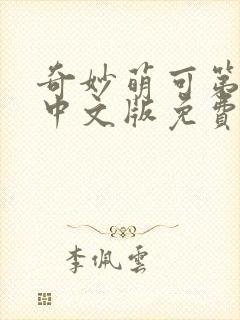 奇妙萌可第
中文版免费
李佩雲